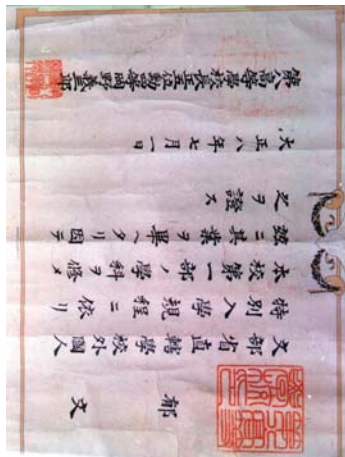 郁文
文部省直轄學校外國人
特別入學規程ニ依リ
本校第一部ノ學科ヲ修メ
玆ニ其業ヲ畢ヘタリ因テ
之ヲ證ス
大正八年七月一日
第八高等學校長正五位勳四等岡野義三郎